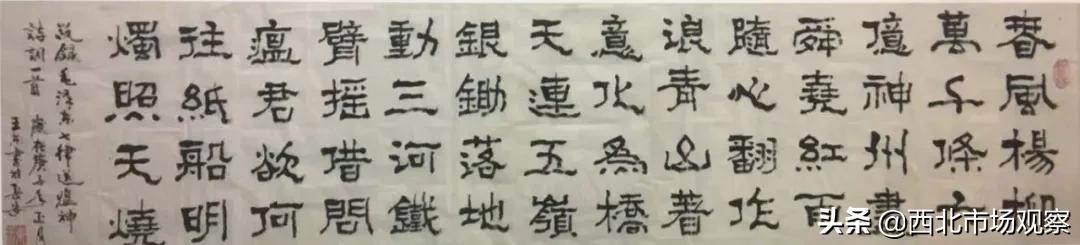 春風楊柳
萬千條六
億神州盡
舜堯紅雨
隨心翻作
浪青山著
意化為橋
天連五嶺
銀鋤落地
動三河鐵
臂搖借問
瘟君欲何
往紙船明
燭照天燒
錄毛澤東七律送瘟神
詩詞一首 歲在庚子年正月
王 書於長安
头条 @西北市场观察